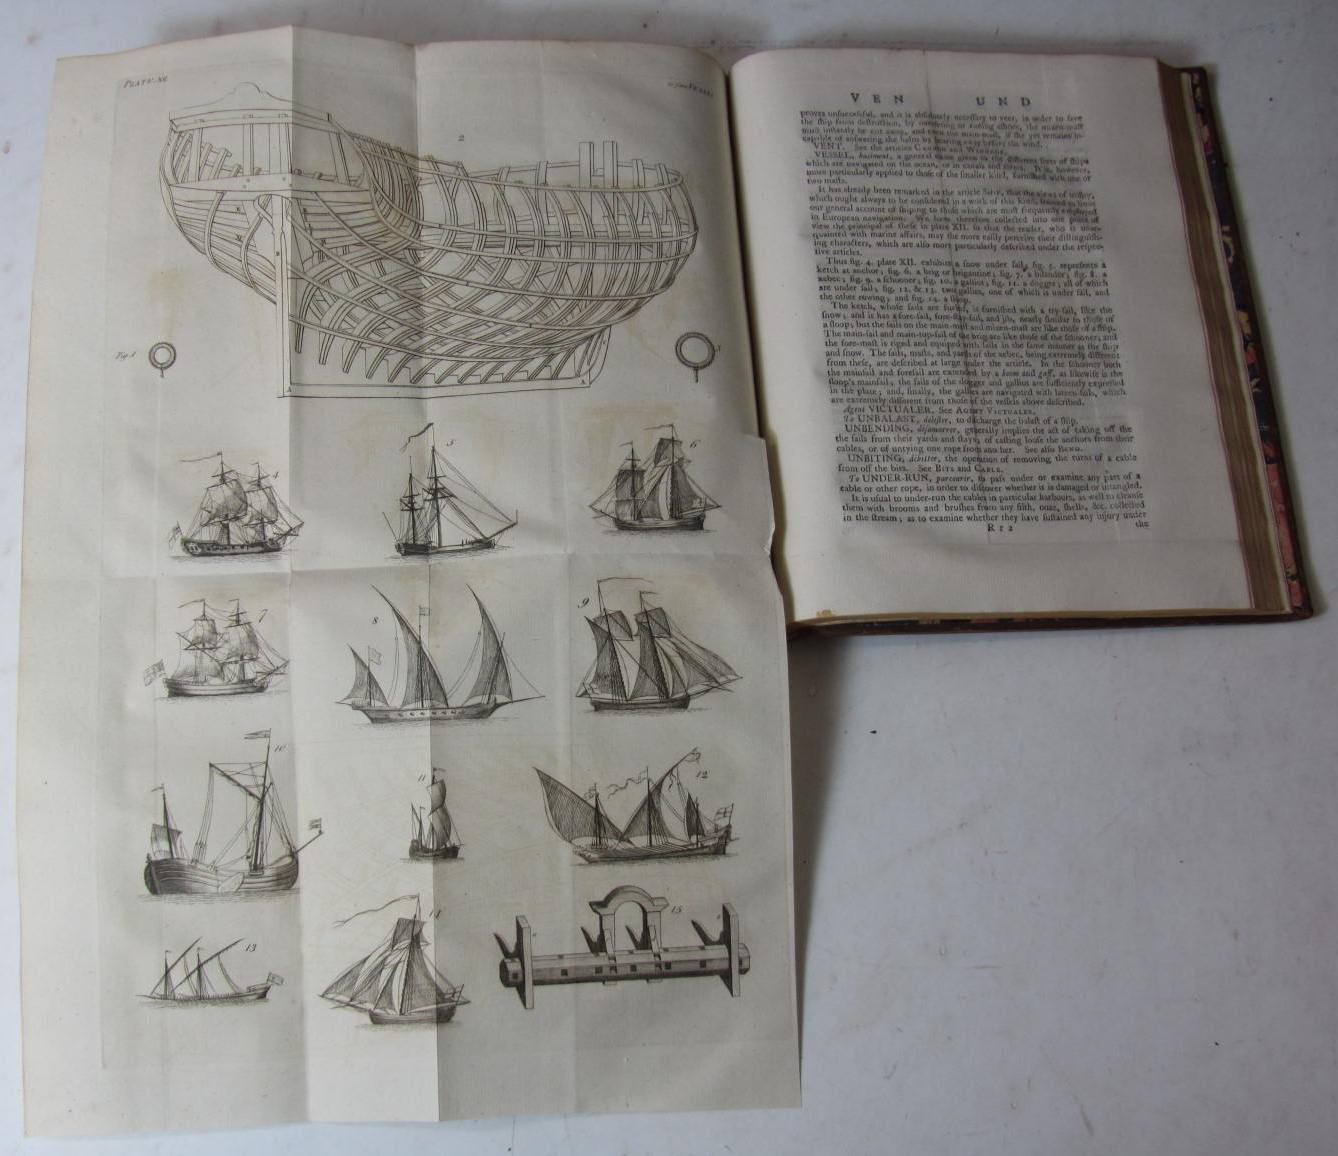 PLATE XII.
to face VESSEL
2
Fig. 1
3
4
5
6
7
8
9
10
11
12
13
14
15
VEN UND
proves unsuccessful, and it is absolutely necessary to veer, in order to save
the ship from destruction, by the mizen-mast
must instantly be cut away, and even the main-mast, if she yet remains in-
capable of answering the helm by bearing away before the wind.
VENT. See the articles CANNON and WINDAGE.
VESSEL, batiment, a general name given to the different sorts of ships
which are navigated on the ocean, or in canals and rivers. It is, however,
more particularly applied to those of the smaller kind, furnished with one or
two masts.
It has already been remarked in the article SHIP, that the views of utility,
which ought always to be considered in a work of this kind, to limit
our general account of shipping to those which are most frequently employed
in European navigation. We have therefore collected into one point of
view the principal of these in plate XII. so that the reader, who is unac-
quainted with marine affairs, may the more easily perceive their distinguish-
ing characters, which are also more particularly described under the respec-
tive articles.
Thus fig. 4. plate XII. exhibits a snow under sail; fig. 5. represents a
ketch at anchor; fig. 6. a brig or brigantine; fig. 7. a bilander; fig. 8. a
xebec; fig. 9. a schooner; fig. 10. a galliot; fig. 11. a dogger; all of which
are under sail; fig. 12. & 13. two gallies, one of which is under sail, and
the other rowing; and fig. 14. a sloop.
The ketch, whose sails are furled, is furnished with a try-sail, like the
snow; and it has a fore-sail, fore-stay-sail, and jib, nearly similar to those of
a sloop; but the sails on the main-mast and mizen-mast are like those of a ship.
The main-sail and main-top-sail of the brig are like those of the schooner; and
the fore-mast is riged and equiped with sails in the same manner as the ship
and snow. The sails, masts, and yards of the xebec, being extremely different
from these, are described at large under the article. In the schooner both
the mainsail and foresail are extended by a boom and gaff, as likewise is the
sloop's mainsail; the sails of the dogger and galliot are sufficiently expressed
in the plate; and, finally, the gallies are navigated with lateen-sails, which
are extremely different from those of the vessels above described.
Agent VICTUALER. See AGENT VICTUALER.
To UNBALAST, delester, to discharge the balast of a ship.
UNBENDING, désamarrer, generally implies the act of taking off the
the sails from their yards and stays; of casting loose the anchors from their
cables, or of untying one rope from another. See also BEND.
UNBITING, débitter, the operation of removing the turns of a cable
from off the bits. See BITS and CABLE.
To UNDER-RUN, parcourir, to pass under or examine any part of a
cable or other rope, in order to discover whether it is damaged or intangled.
It is usual to under-run the cables in particular harbours, as well to cleanse
them with brooms and brushes from any filth, ooze, shells, &c. collected
in the stream; as to examine whether they have sustained any injury under
R r 2 the